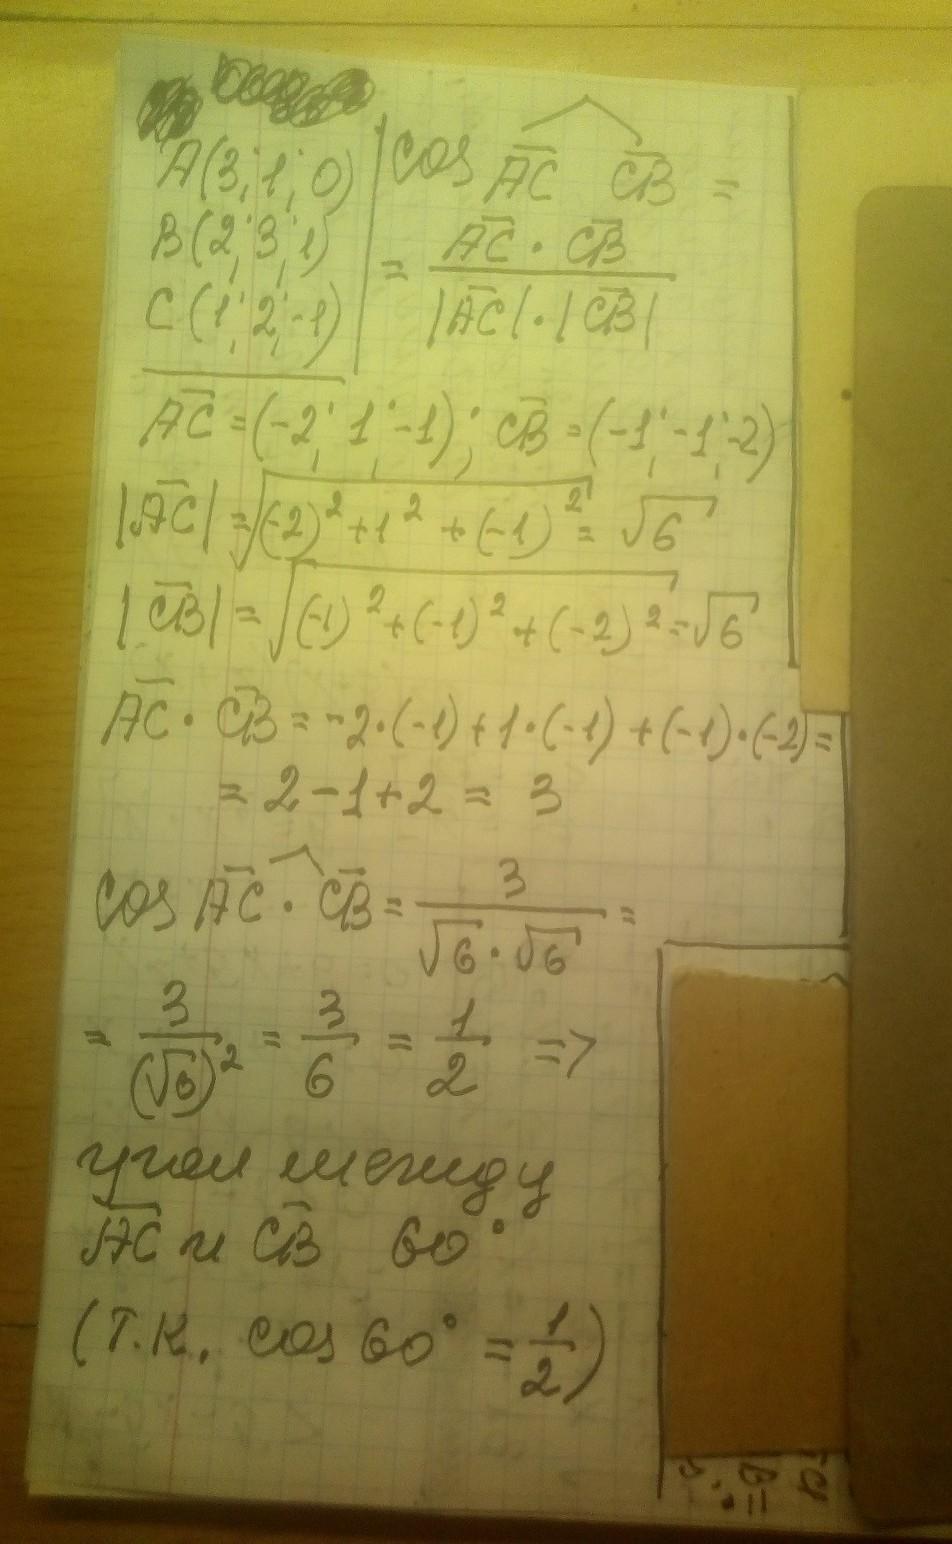 A(3; 1; 0)
B(2; 3; 1)
C(1; 2; -1)
cos AC CB =
= AC · CB / |AC| · |CB|
AC = (-2; 1; -1); CB = (-1; -1; -2)
|AC| = √(-2)² + 1² + (-1)² = √6
|CB| = √(-1)² + (-1)² + (-2)² = √6
AC · CB = -2·(-1) + 1·(-1) + (-1)·(-2) =
= 2 - 1 + 2 = 3
cos AC · CB = 3 / √6 · √6 =
= 3 / (√6)² = 3/6 = 1/2 =>
угол между
AC и CB 60°
(т.к. cos 60° = 1/2)